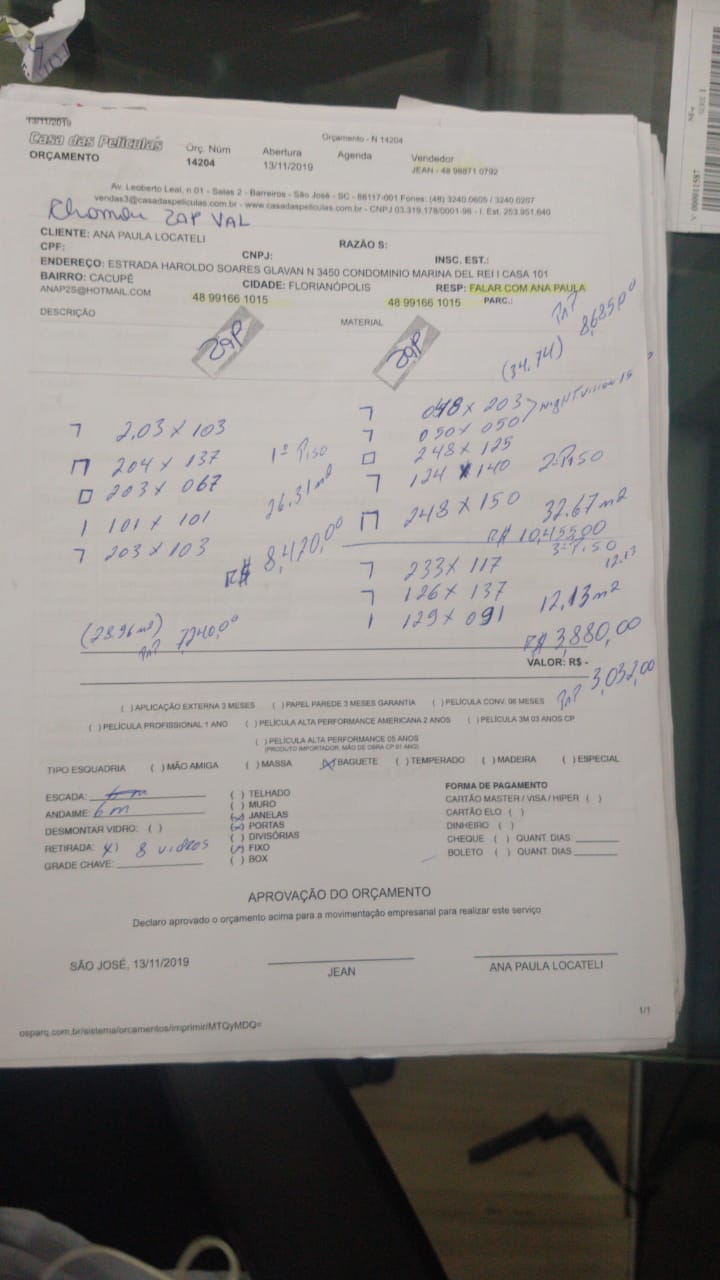 13/11/2019
Orçamento - N 14204
Casa das Películas
ORÇAMENTO
Orç. Núm
14204
Abertura
13/11/2019
Agenda
Vendedor
JEAN - 48 98871 0792
Av. Leoberto Leal, n 01 - Salas 2 - Barreiros - São José - SC - 88117-001 Fones: (48) 3240.0605 / 3240.0207
vendas3@casadaspeliculas.com.br - www.casadaspeliculas.com.br - CNPJ 03.319.178/0001-96 - I. Est. 253.951.640
ZAP VAL
CLIENTE: ANA PAULA LOCATELI
RAZÃO S:
CPF:
CNPJ:
INSC. EST.:
ENDEREÇO: ESTRADA HAROLDO SOARES GLAVAN N 3450 CONDOMINIO MARINA DEL REI I CASA 101
BAIRRO: CACUPÉ
CIDADE: FLORIANÓPOLIS
RESP: FALAR COM ANA PAULA
ANAP2S@HOTMAIL.COM
48 99166 1015
48 99166 1015
PARC.:
DESCRIÇÃO
MATERIAL
ZAP
ZAP
(34,74)
8,685,00
2,03 x 103
204 x 137
203 x 067
101 x 101
203 x 103
1º Piso
26.31 m2
R$ 8,420,00
(28.96 m2)
7240,00
048 x 203
050 x 050
NIGHT VISION 15
248 x 125
124 x 140
2-Piso
248 x 150
32.67 m2
R$ 10,455,00
3-Piso
233 x 117
12.13
126 x 137
129 x 091
12,13 m2
R$ 3,880,00
VALOR: R$ -
3,032,00
( ) APLICAÇÃO EXTERNA 3 MESES ( ) PAPEL PAREDE 3 MESES GARANTIA ( ) PELÍCULA CONV. 06 MESES
( ) PELÍCULA PROFISSIONAL 1 ANO ( ) PELÍCULA ALTA PERFORMANCE AMERICANA 2 ANOS ( ) PELÍCULA 3M 03 ANOS CP
( ) PELÍCULA ALTA PERFORMANCE 05 ANOS
(PRODUTO IMPORTADOR, MÃO DE OBRA CP 01 ANO)
TIPO ESQUADRIA ( ) MÃO AMIGA ( ) MASSA (x) BAGUETE ( ) TEMPERADO ( ) MADEIRA ( ) ESPECIAL
ESCADA:
ANDAIME: 6m
DESMONTAR VIDRO: ( )
RETIRADA: (x) 8 vidros
GRADE CHAVE:
( ) TELHADO
( ) MURO
(x) JANELAS
(x) PORTAS
( ) DIVISÓRIAS
(x) FIXO
( ) BOX
FORMA DE PAGAMENTO
CARTÃO MASTER / VISA / HIPER ( )
CARTÃO ELO ( )
DINHEIRO ( )
CHEQUE ( ) QUANT. DIAS:
BOLETO ( ) QUANT. DIAS
APROVAÇÃO DO ORÇAMENTO
Declaro aprovado o orçamento acima para a movimentação empresarial para realizar este serviço
SÃO JOSÉ, 13/11/2019
JEAN
ANA PAULA LOCATELI
1/1
osparq.com.br/sistema/orcamentos/imprimir/MTQyMDQ=
NF-e
Nº 000011587